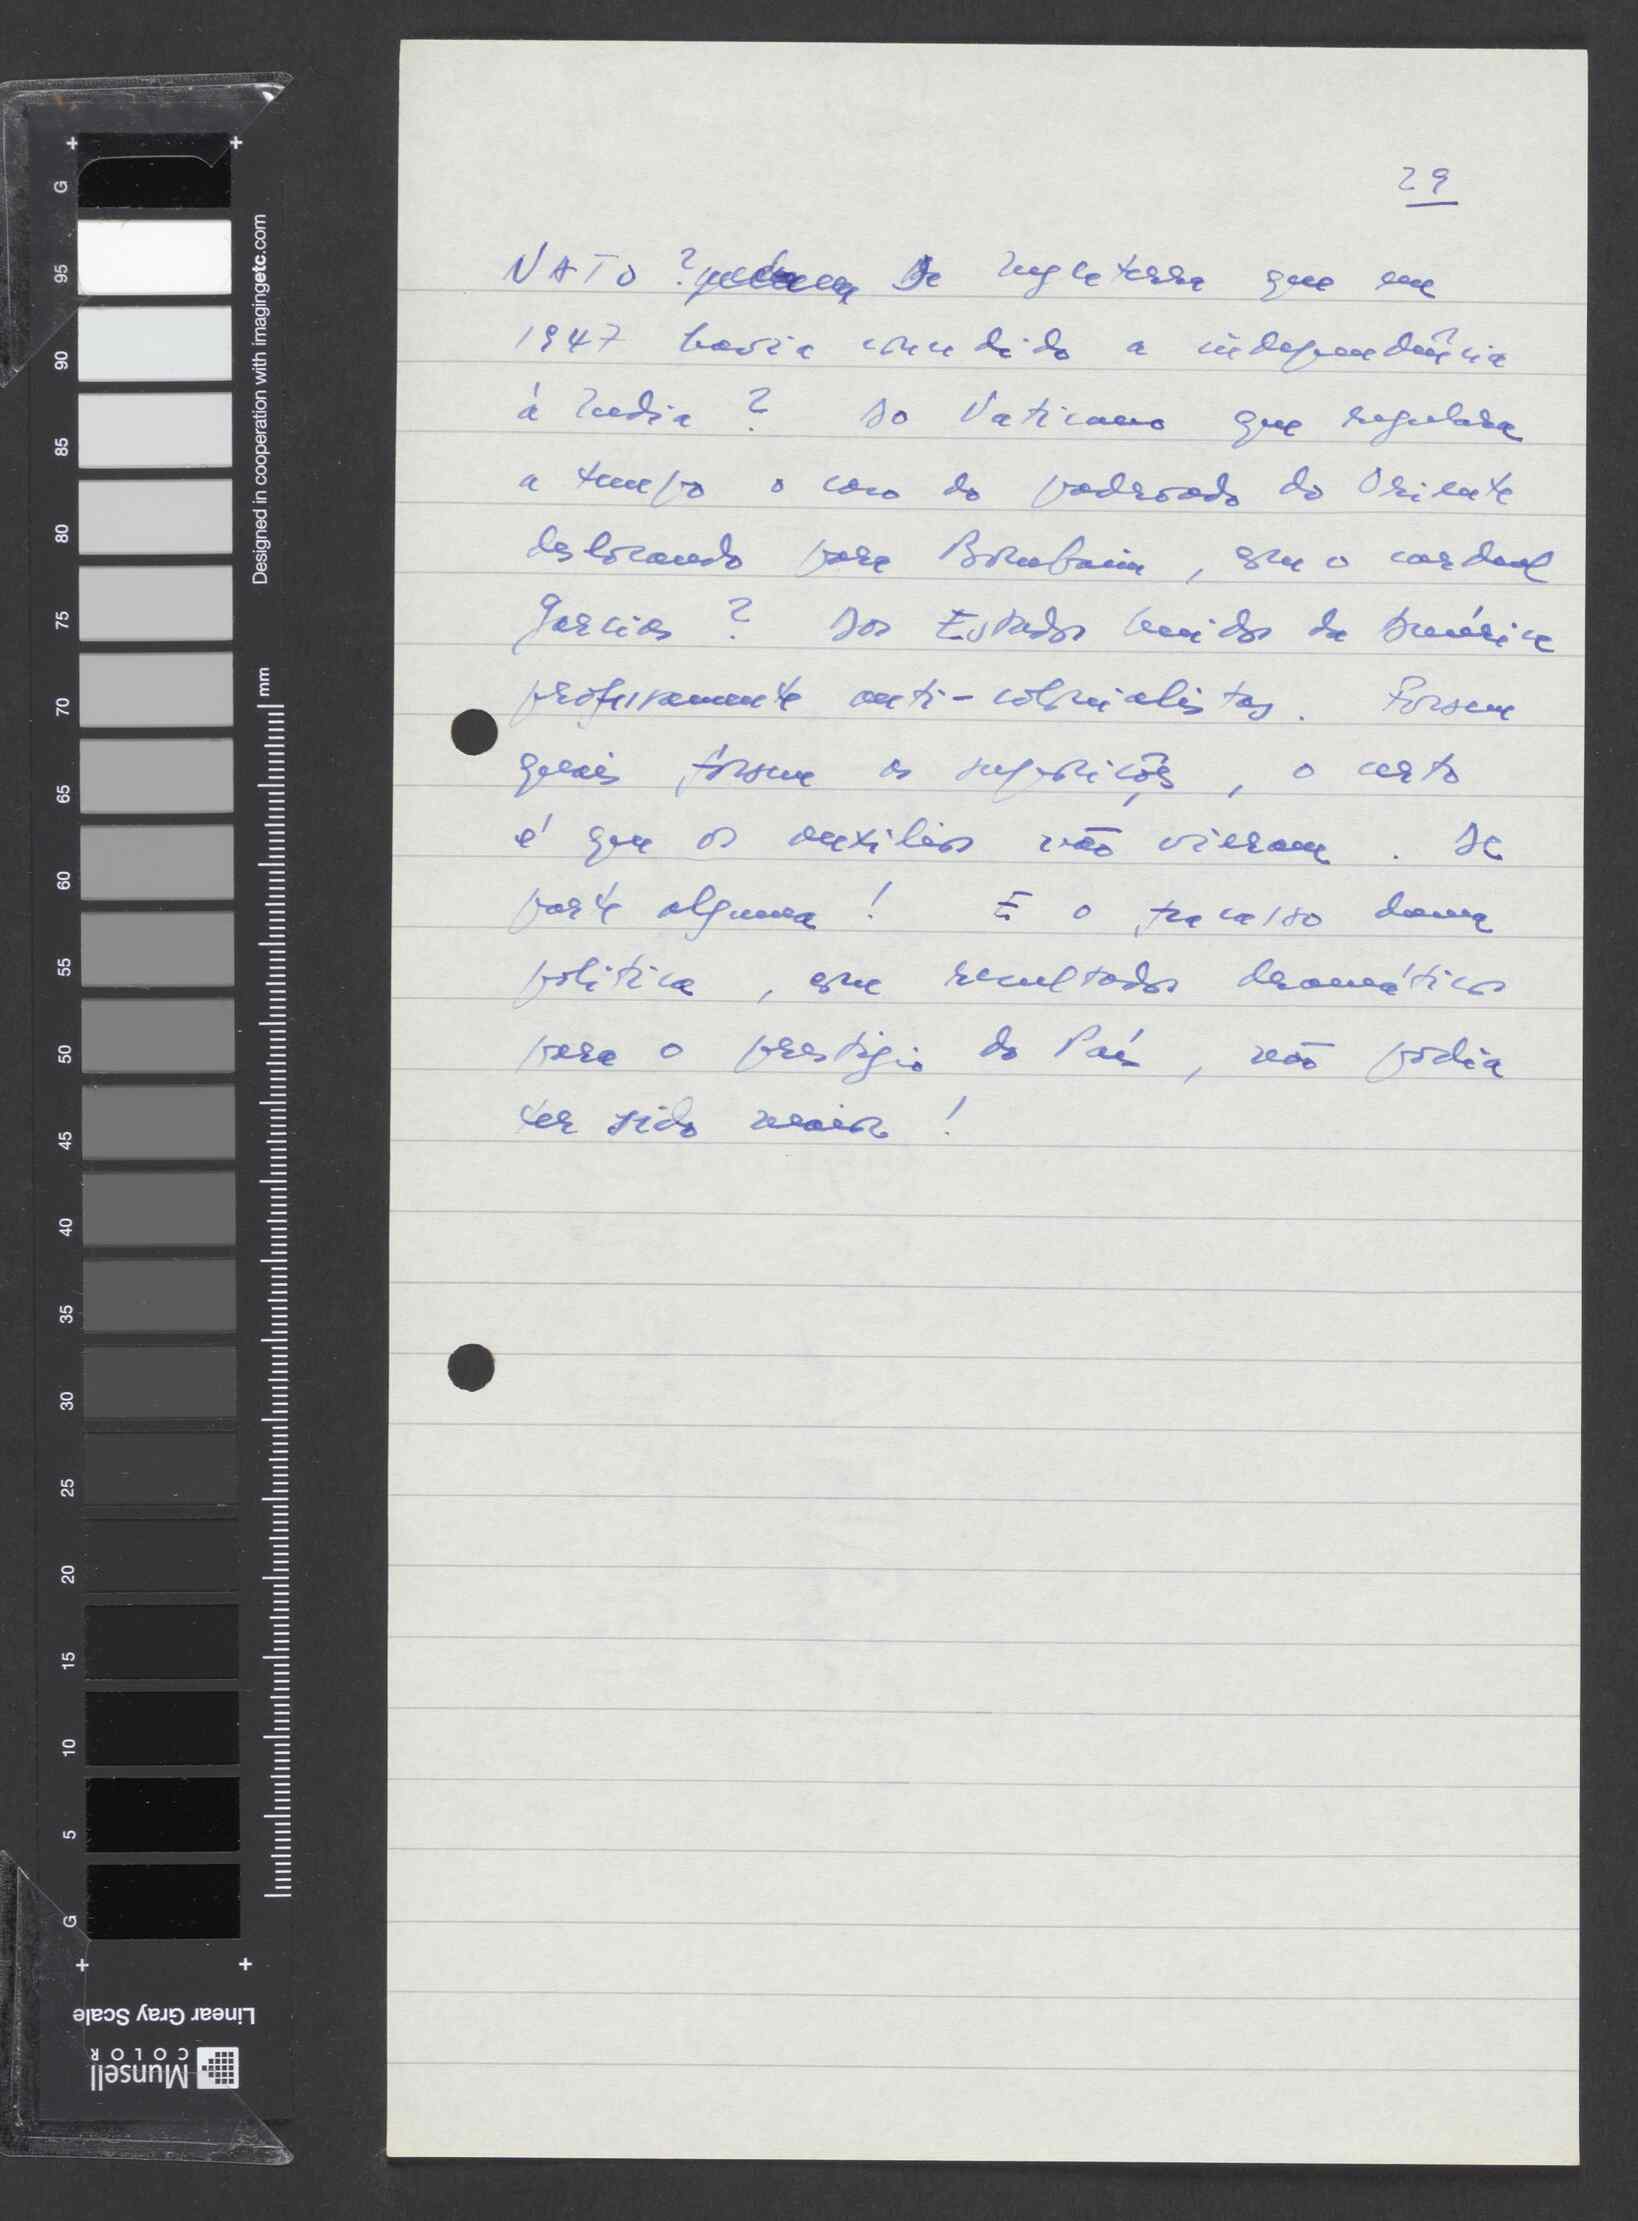 29
NATO ? Da Inglaterra que em
1947 havia concedido a independência
á India ? Do Vaticano que regulara
a tempo o caso do padroado do Oriente
deslocando para Bombaim, com o cardeal
Gracias ? Dos Estados Unidos da América
professamente anti-colonialistas. Fossem
quais fossem as suposições, o certo
é que os auxilios não vieram. De
parte alguma ! E o fracasso duma
politica, com resultados dramáticos
para o prestigio do País, não podia
ter sido maior !
G
95
90
85
80
75
70
65
60
55
50
45
40
35
30
25
20
15
10
5
G
Designed in cooperation with imagingetc.com
mm
Linear Gray Scale
Munsell
COLOR